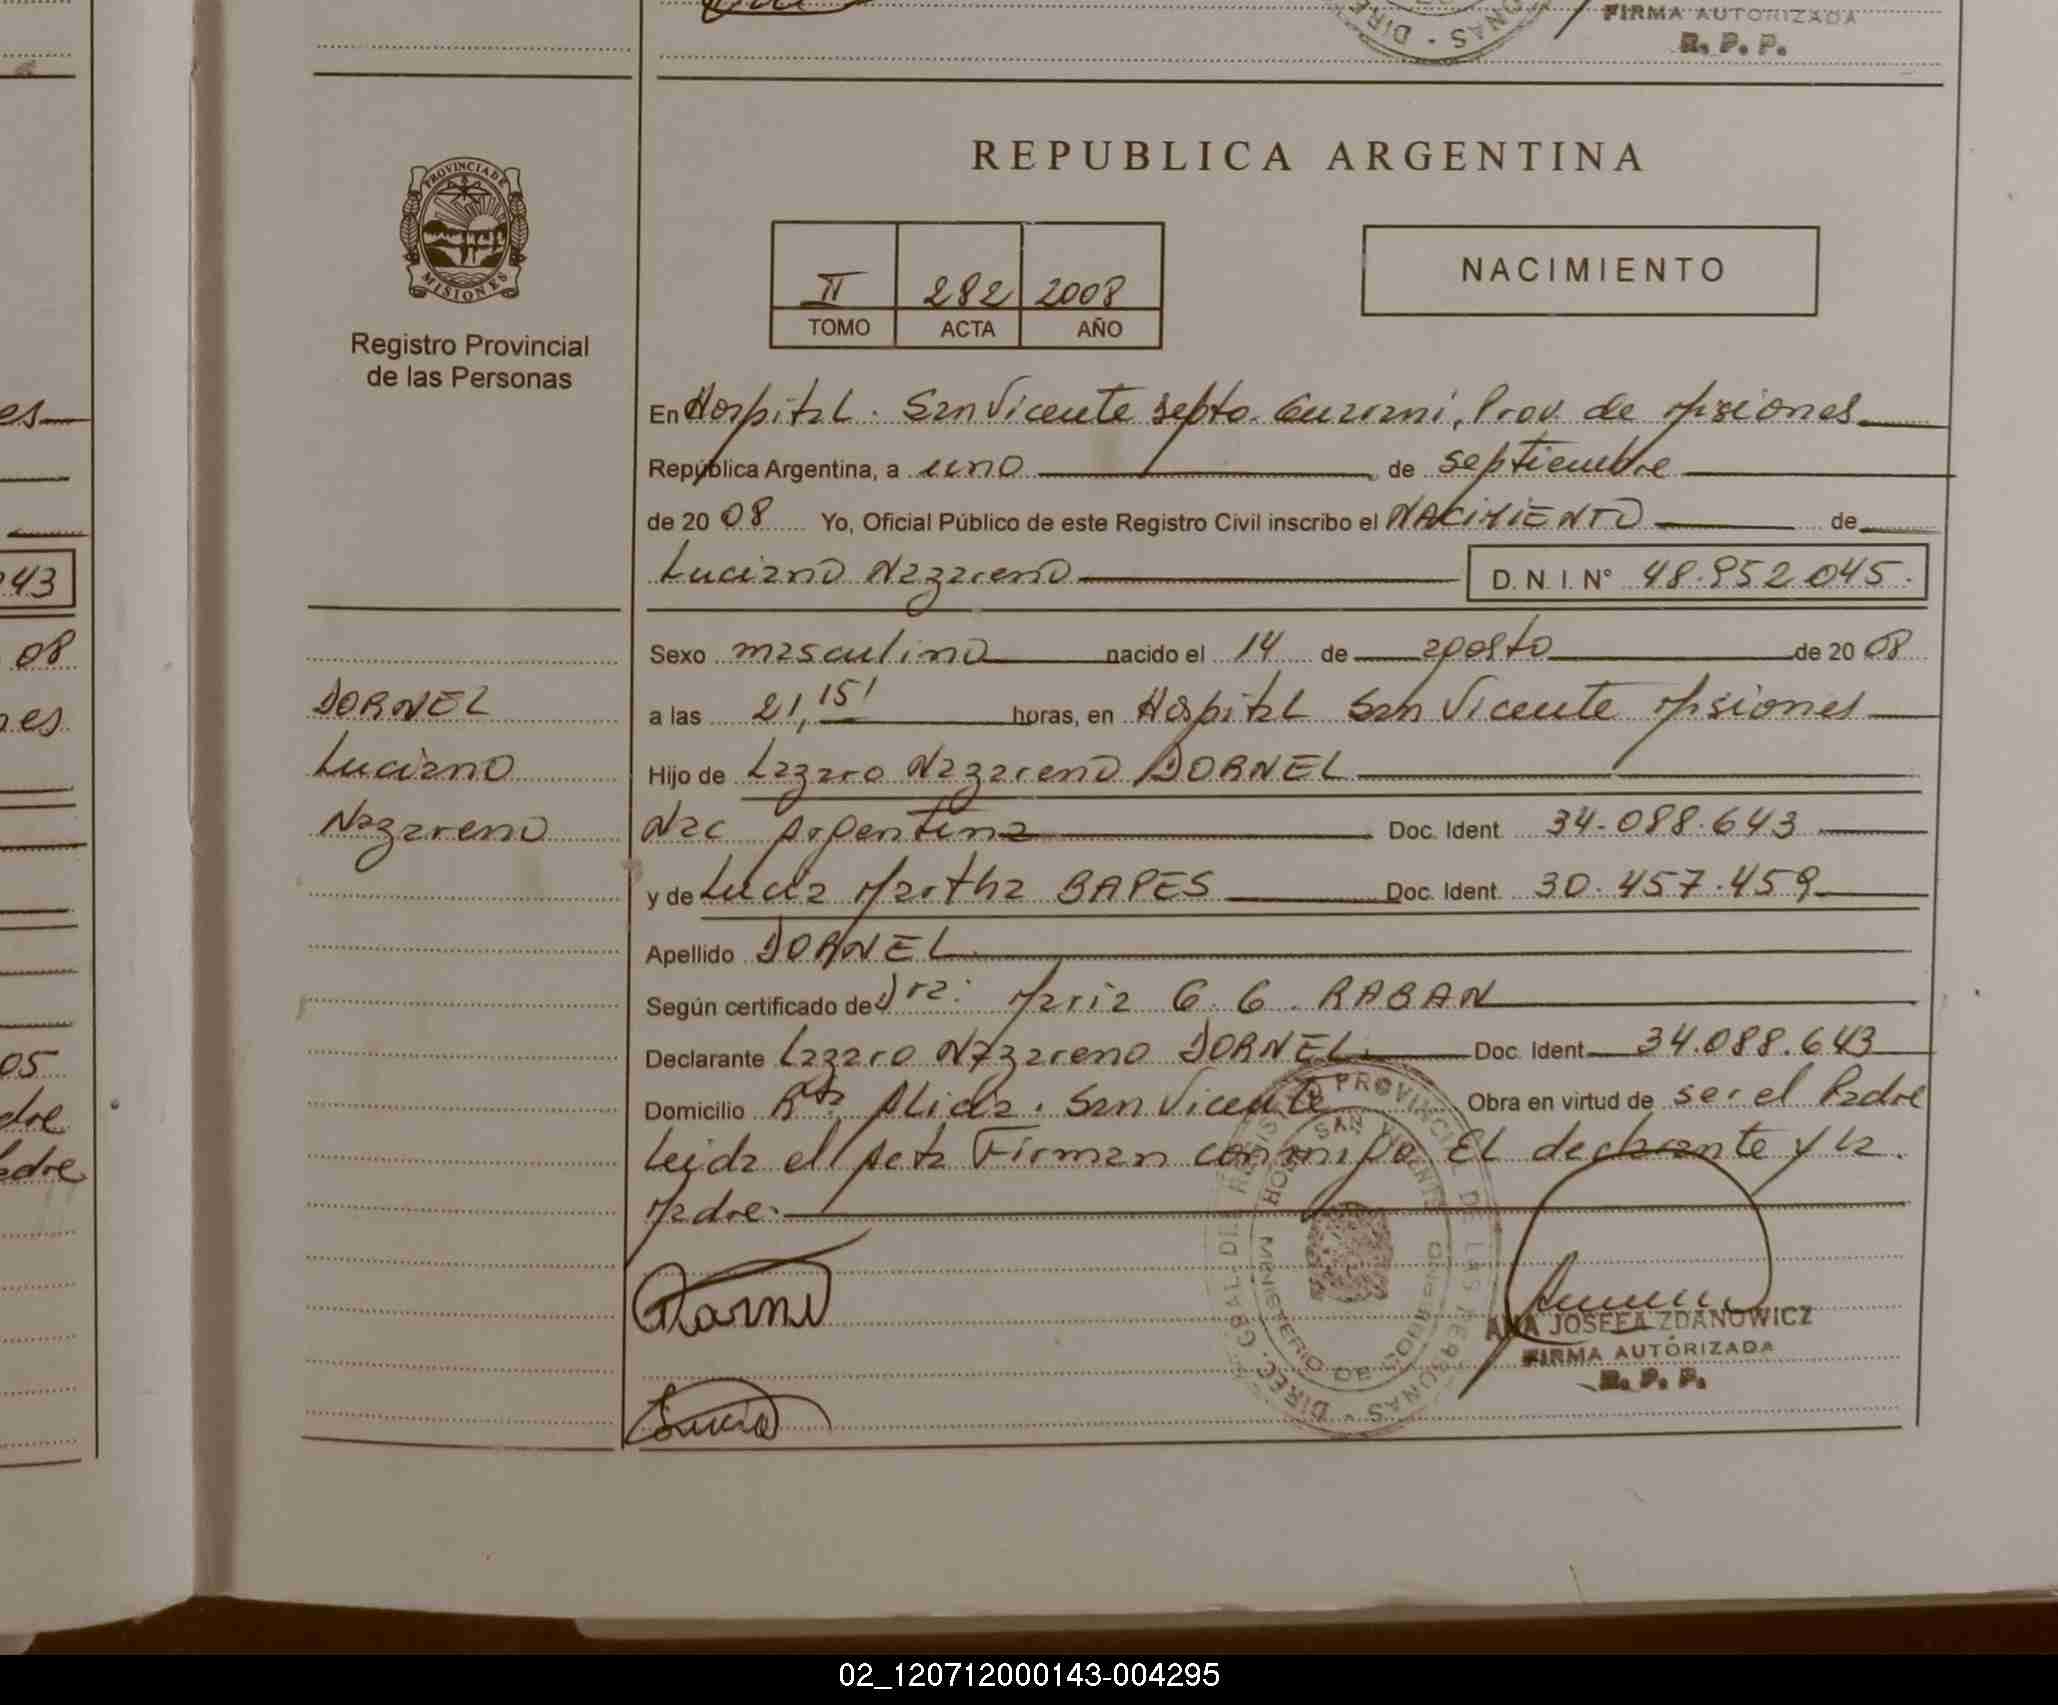 FIRMA AUTORIZADA
R. P. P.
PROVINCIA DE
MISIONES
Registro Provincial
de las Personas
REPUBLICA ARGENTINA
II 282 2008
TOMO ACTA AÑO
NACIMIENTO
En Hospital. San Vicente Depto. Guarani, Prov. de Misiones
República Argentina, a uno de septiembre
de 20 08 Yo, Oficial Público de este Registro Civil inscribo el NACIMIENTO de
Luciano Nazareno D. N. I. N° 48.952.045.
Sexo masculino nacido el 14 de agosto de 20 08
a las 21,15' horas, en Hospital San Vicente Misiones
Hijo de Lazaro Nazareno DORNEL
Nac Argentina Doc. Ident. 34.088.643
y de Lucia Martha Doc. Ident. 30.457.459
Apellido DORNEL
Según certificado de Dra. Maria G. G. RABAN
Declarante Lazaro Nazareno DORNEL Doc. Ident. 34.088.643
Domicilio San Vicente Obra en virtud de ser el Padre
Leida el Acta Firman conmigo El declarante y la
Madre.
DORNEL
Luciano
Nazareno
Lucia
ANA JOSEFA ZDANOWICZ
FIRMA AUTORIZADA
R. P. P.
es
43
08
nes
05
dre
adre
02_120712000143-004295